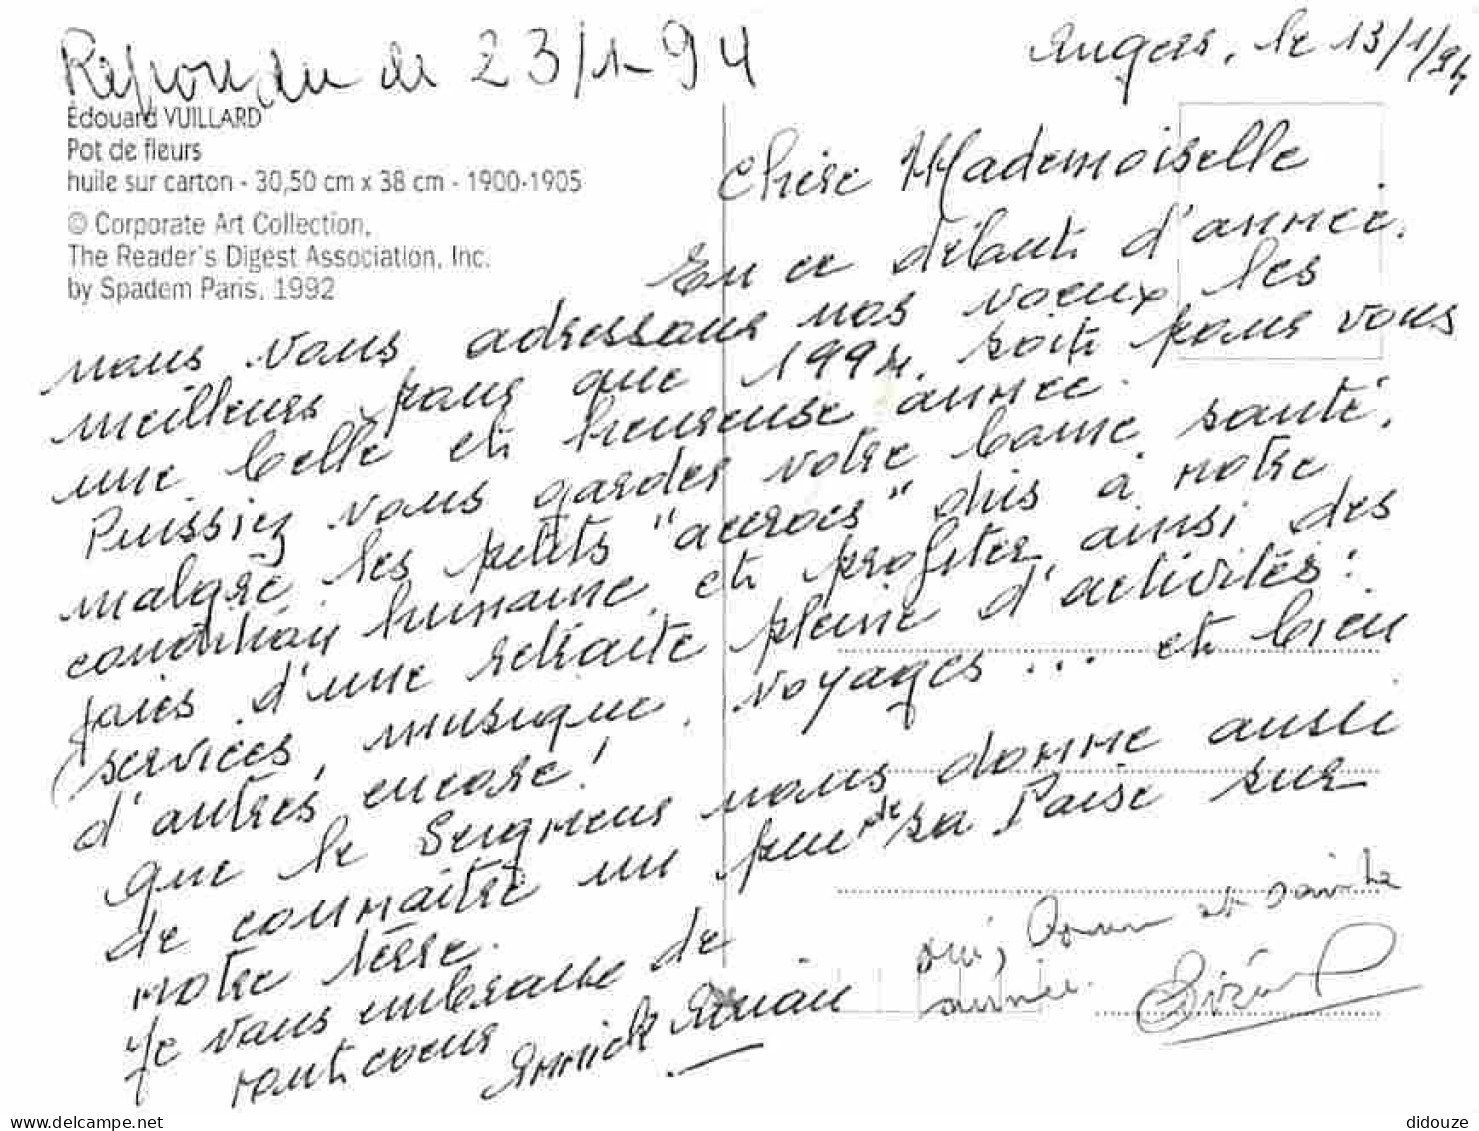 Répondu le 23/1-94
Angers, le 13/1/94
Édouard VUILLARD
Pot de fleurs
huile sur carton - 30,50 cm x 38 cm - 1900-1905
© Corporate Art Collection,
The Reader's Digest Association, Inc.
by Spadem Paris, 1992
Chère Mademoiselle
En ce début d'année,
nous vous adressons nos voeux les
meilleurs pour que 1994 soit pour vous
une belle et heureuse année.
Puissiez vous garder votre bonne santé,
malgré les petits "accrocs" dus à notre
condition humaine, et profiter ainsi des
joies d'une retraite pleine d'activités :
(services, musique, voyages... et bien
d'autres encore !
Que le Seigneur nous donne aussi
de connaître un peu de sa Paix sur
notre terre.
Je vous embrasse de
tout coeur
Annick
oui, bonne et sainte
année.
delcampe.net
didouze